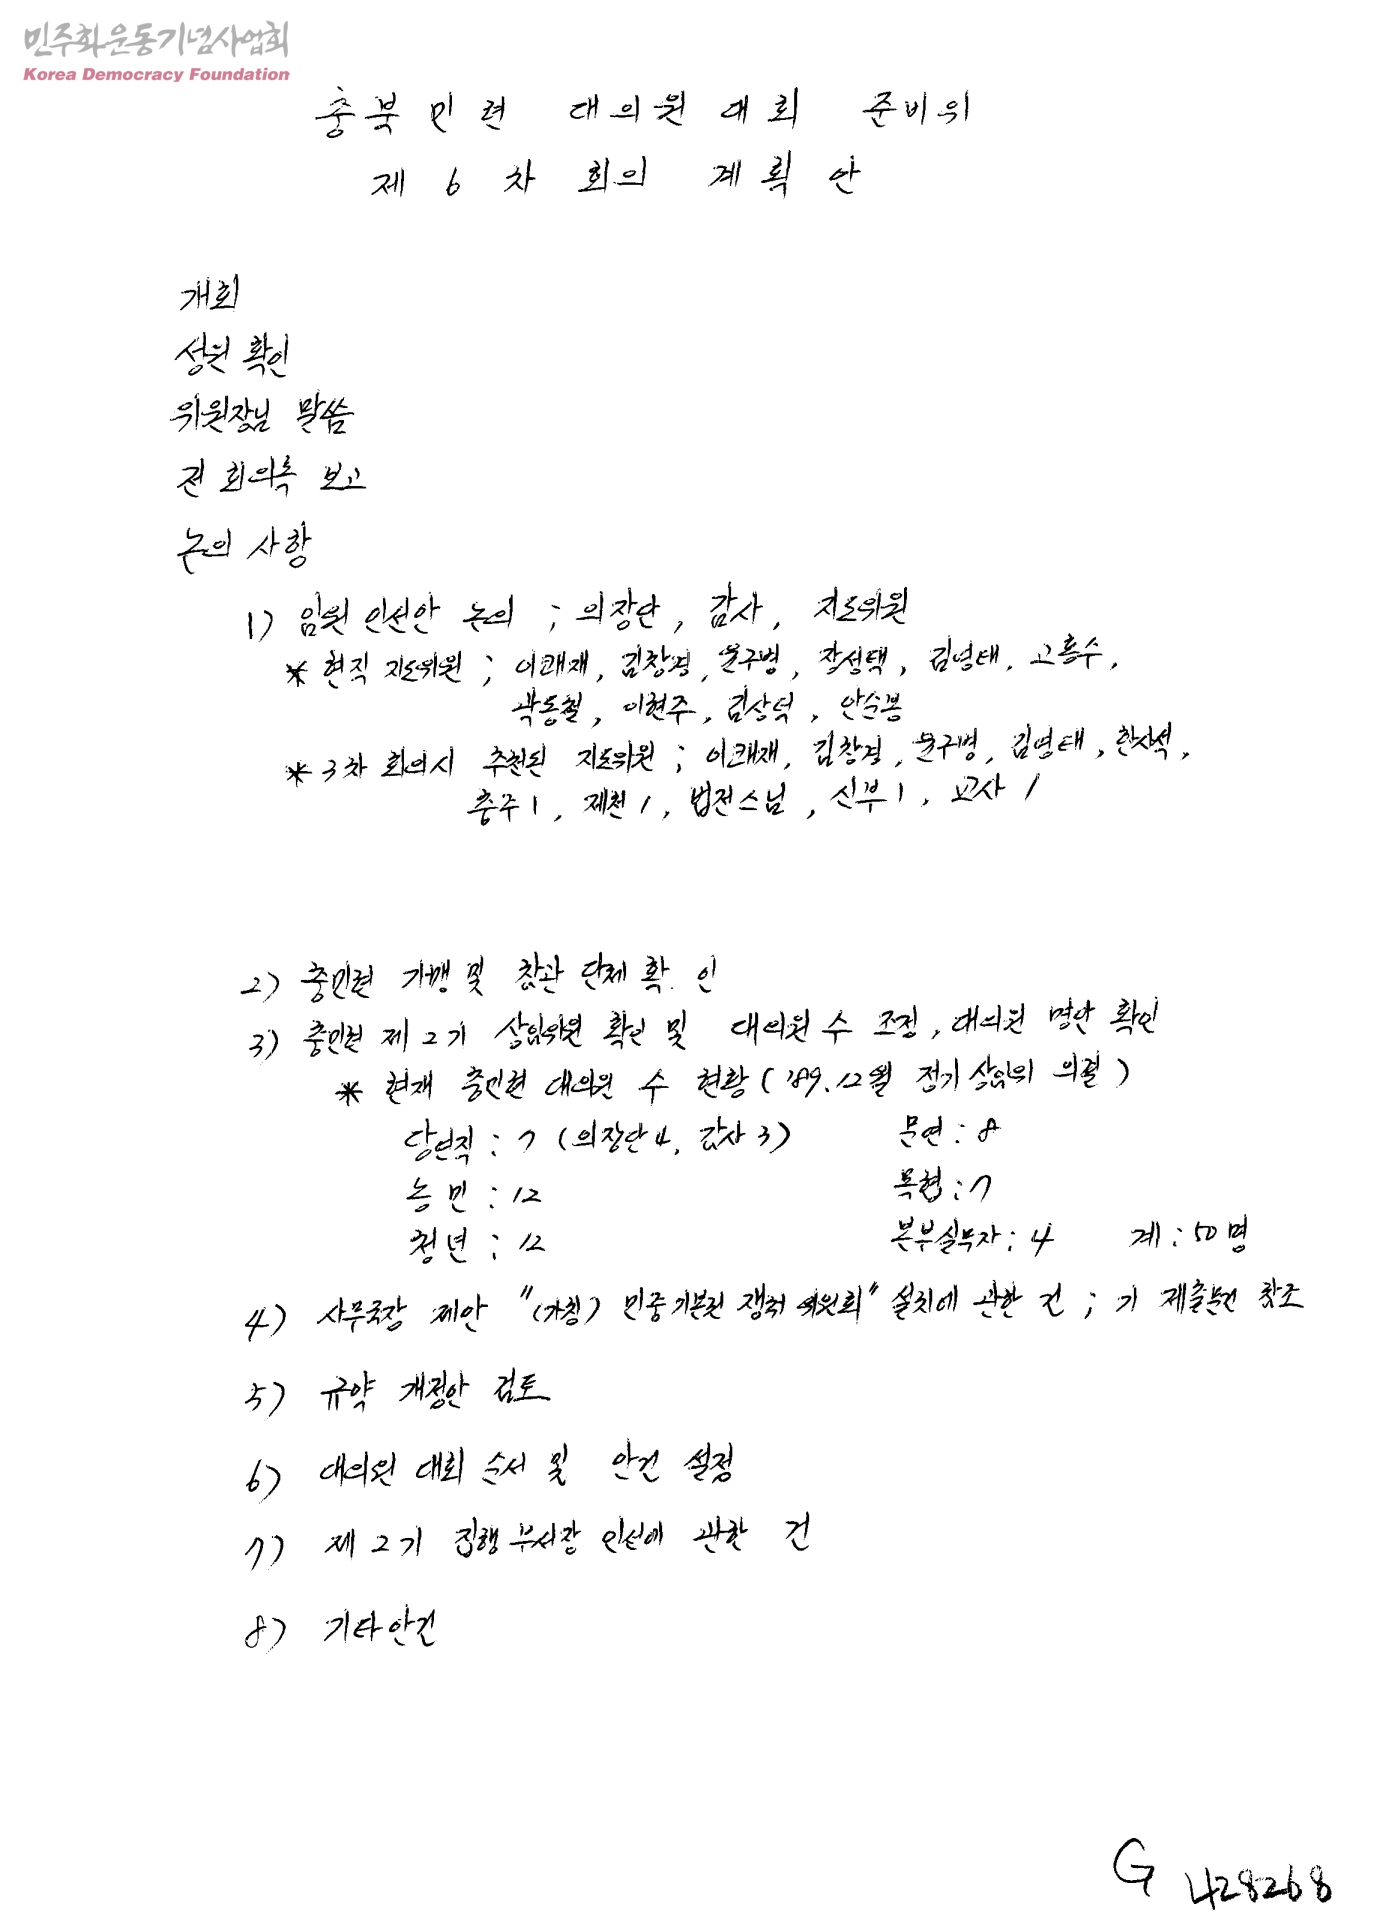 민주화운동기념사업회
Korea Democracy Foundation
충북민련 대의원대회 준비위
제 6 차 회의 계획안
개회
성원 확인
위원장님 말씀
전 회의록 보고
논의 사항
1) 임원 인선안 논의 ; 의장단, 감사, 지도위원
* 현직 지도위원 ; 이쾌재, 김창경, 윤구병, 장성택, 김영태, 고흥수,
곽동철, 이현주, 김상덕, 안순봉
* 3차 회의시 추천된 지도위원 ; 이쾌재, 김창경, 윤구병, 김영태, 한사석,
충주 1, 제천 1, 법전스님, 신부 1, 교사 1
2) 충민련 가맹 및 참관 단체 확인
3) 충민련 제 2 기 상임위원 확인 및 대의원 수 조정, 대의원 명단 확인
* 현재 충민련 대의원 수 현황 ( '89. 12월 정기상임의 의결 )
당연직 : 7 (의장단 4, 감사 3) 문연 : 8
농민 : 12 목협 : 7
청년 : 12 본부실무자 : 4 계 : 50명
4) 사무국장 제안 "(가칭) 민중기본권 쟁취 위원회" 설치에 관한 건 ; 기 제출문건 참조
5) 규약 개정안 검토
6) 대의원 대회 순서 및 안건 설정
7) 제 2 기 집행 부서장 인선에 관한 건
8) 기타안건
G 428268